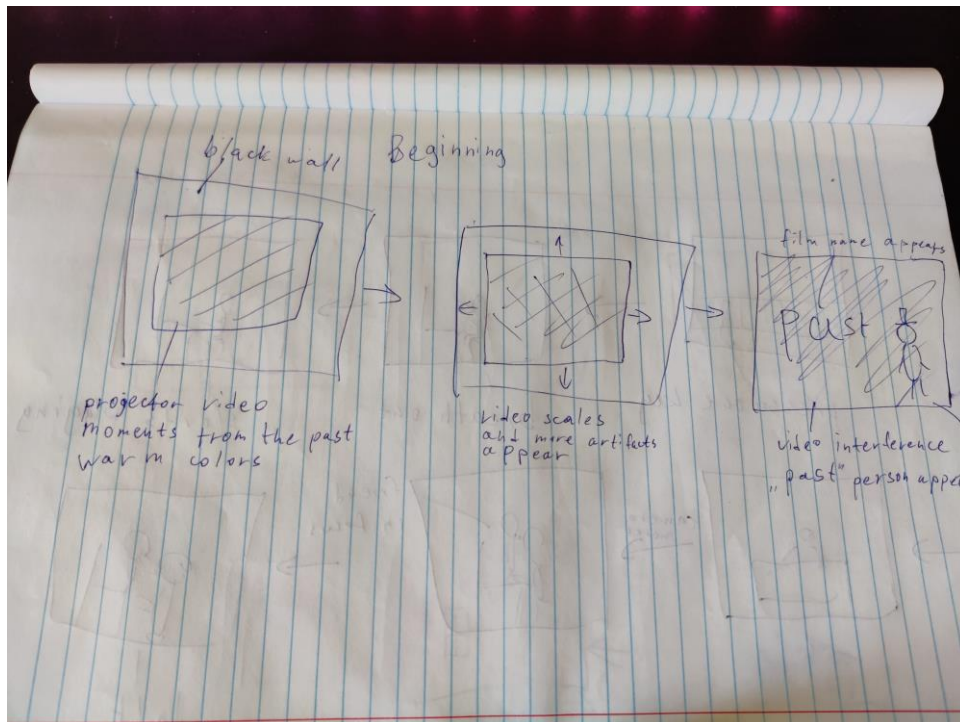 black wall
Beginning
projector video
moments from the past
warm colors
video scales
and more artifacts
appear
film name appears
past
video interference
„past" person appe